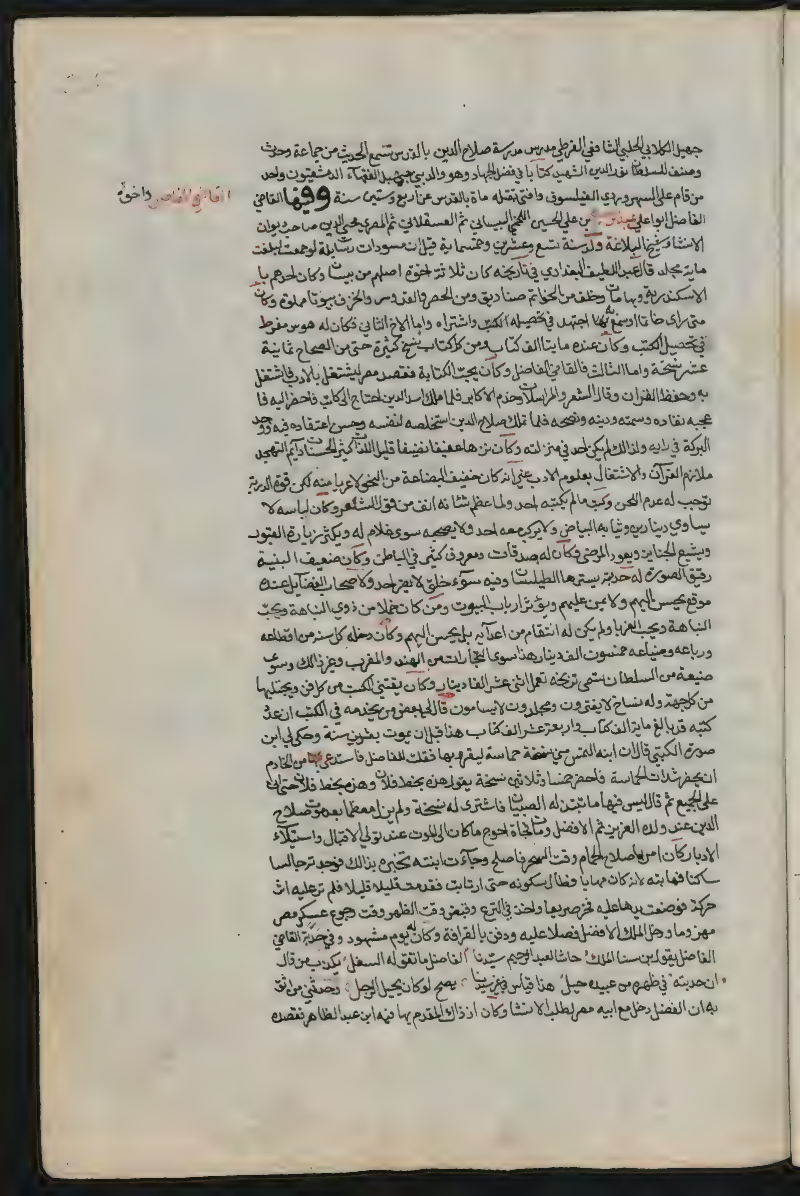 جهبل الكلابي الحلبي الشافعي الفرضي مدرس مدرسة صلاح الدين بالقدس سمع الحديث من جماعة وحدث
وصنف للسلطان نور الدين الشهيد كتابا في فضل الجهاد وهو والد بني جهبل الفقهاء الدمشقيون واحد
من قام على السهروردي الفيلسوف وافتى بقتله مات بالقدس عن اربع وستين سنة وفيها القاضي
القاضي الفاضل واخوته
الفاضل ابوا علي عبد الرحيم بن علي الحسين اللخمي البيساني ثم العسقلاني ثم المصري محيي الدين صاحب ديوان
الانشا وشيخ البلاغة ولد سنة تسع وعشرين وخمسماية قيل ان مسودات رسايله لو جمعت لبلغت
ماية مجلد قال عبد اللطيف البغدادي في تاريخه كان ثلاثة اخوة اصلهم من بيسان وكان احدهم با
الاسكندرية وبها مات وخلف من الخواتم صناديق ومن الحصر والقدوس والخزف بيوتا مملوة وكان
متى راى خاتما او سمع به اجتهد في تحصيله واشتراه واما الاخ الثاني فكان له هوس مفرط
في تحصيل الكتب وكان عنده مايتا الف كتاب ومن كل كتاب نسخ كثيرة حتى من الصحاح ثمانية
عشر نسخة واما الثالث فالقاضي الفاضل وكان يحب الكتابة فقصد مصر ليشتغل بالادب فاشتغل
به وحفظ القران وقال الشعر والمراسلات وخدم الاكابر فلما ملك اسد الدين احتاج الى كاتب فاحضر اليه فا
عجبه نفاده وسمته ودينه ونصحه فلما تملك صلاح الدين استخلصه لنفسه وحسن اعتقاده فيه ووجد
البركة في رايه ولذالك لم يكن احد في منزلته وكان نزها عفيفا نضيفا قليل اللذات كثير الحسنات دايم التهجد
ملازم القرآن والاشتغال بعلوم الادب غير انه كان خفيف البضاعة من النحو لا عريا منه لكن قوة الدربة
توجب له عدم اللحن وكتب ما لم يكتبه احد ولما عظم شانه انف من قول الشعر وكان لباسه لا
يساوي دينارين وثيابه البياض ولا يركب معه احد ولا يصحبه سوى غلام له ويكثر زيارة القبور
ويشيع الجنايز ويعود المرضى وكان له صدقات ومعروف كثير في الباطن وكان ضعيف البنية
رقيق الصورة له حدبة يسترها الطيلسان وفيه سوء خلق لا يضر احد ولاصحاب الفضايل عنده
موقع يحسن اليهم ولا يمن عليهم ويؤثر ارباب البيوت ومن كان خملا من ذوي النباهة ويحب
النباهة ويحب الغربا ولم يكن له انتقام من اعدآيه بل يحسن اليهم وكان دخله كل سنة من اقطاعه
ورباعه وضياعه خمسون الف دينار هذا سوى التجارات من الهند والمغرب وغير ذالك وسوى
ضيعة من السلطان تسمى ترنجه تعمل اثني عشر الف دينار وكان يقتني الكتب من كل فن ويجتلبها
من كل جهة وله نساخ لا يفترون ومجلدون لا يسامون قال لي بعض من يخدمه في الكتب ان عدد
كتبه قد بلغ ماية الف كتاب واربعة عشر الف كتاب هذا قبل ان يموت بعشرين سنة وحكى لي ابن
صورة الكتبي قال ان ابنه التمس مني نسخة حماسة ليقرو بها فقلت للفاضل فاستدعى بها من الخادم
ان يحضر شدات الحماسة فاحضر خمسا وثلاثين نسخة يقول هذه بخط فلان وهذه بخط فلان حتى اتى
على الجميع ثم قال ليس فيها ما تبتذله الصبيان فاشترى له نسخة ولم يزل معظما بعد موت صلاح
الدين عند ولده العزيز ثم الافضل ومات فجاة احوج ما كان الى الموت عند تولي الاقبال واستيلاء
الادبار كان امر باصلاح الحمام وقت السحر فاصلح وجآءت ابنته تخبره بذالك فوجدته جالسا
ساكتا فهابته لانه كان مهابا وطال سكوته حتى ارتابت فقدمت قليلا قليلا فلم تر عليه اثر
حركة فوضعت يدها عليه فخر صريعا واخذ في النزع وقبض وقت الظهر وقت رجوع عسكر مصر
مهزوما ودخل الملك الافضل فصلا عليه ودفن بالقرافة وكان له يوم مشهود وفي حدبة القاضي
الفاضل يقول ابن سنا الملك حاشا لعبد الرحيم سيدنا الفاضل ما تقوله السفل يكذب من قال
ان حدبته في ظهره من عبيده حبل هذا قياس في غير سيدنا يصح لو كان يحبل الرجل وحدثني من اثق
به ان الفضل دخل مع ابيه مصر لطلب الانشا وكان اذ ذاك المقدم بها فيه ابن عبد الظاهر فقصده